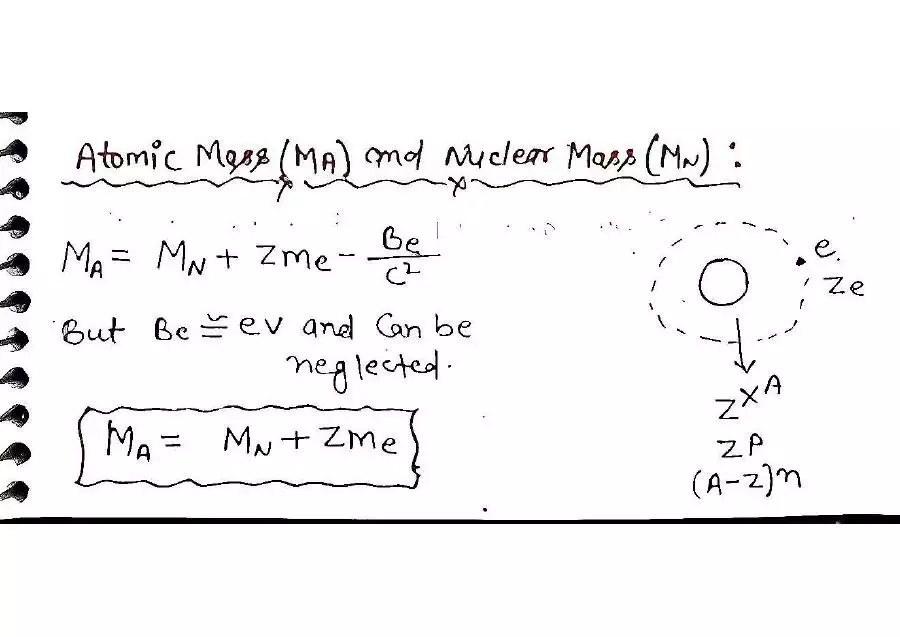 Atomic Mass (MA) and Nuclear Mass (MN) :
MA = MN + Zme - Be/c²
But Be ≅ ev and Can be
neglected.
MA = MN + Zme
e
Ze
ZXA
ZP
(A-Z)n